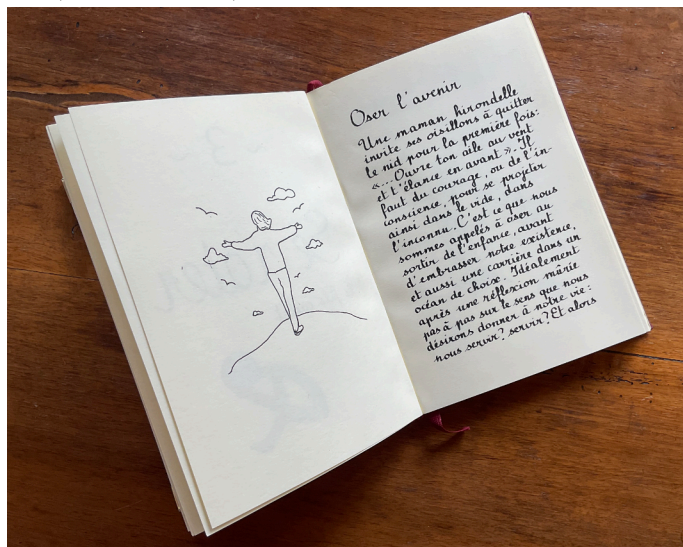 Oser l'avenir
Une maman hirondelle
invite ses oisillons à quitter
le nid pour la première fois:
«...Ouvre ton aile au vent
et t'élance en avant». Il
faut du courage, ou de l'in-
conscience, pour se projeter
ainsi dans le vide, dans
l'inconnu. C'est ce que nous
sommes appelés à oser au
sortir de l'enfance, avant
d'embrasser notre existence,
et aussi une carrière dans un
océan de choix. Idéalement
après une réflexion mûrie
pas à pas sur le sens que nous
désirons donner à notre vie:
nous servir? servir? Et alors